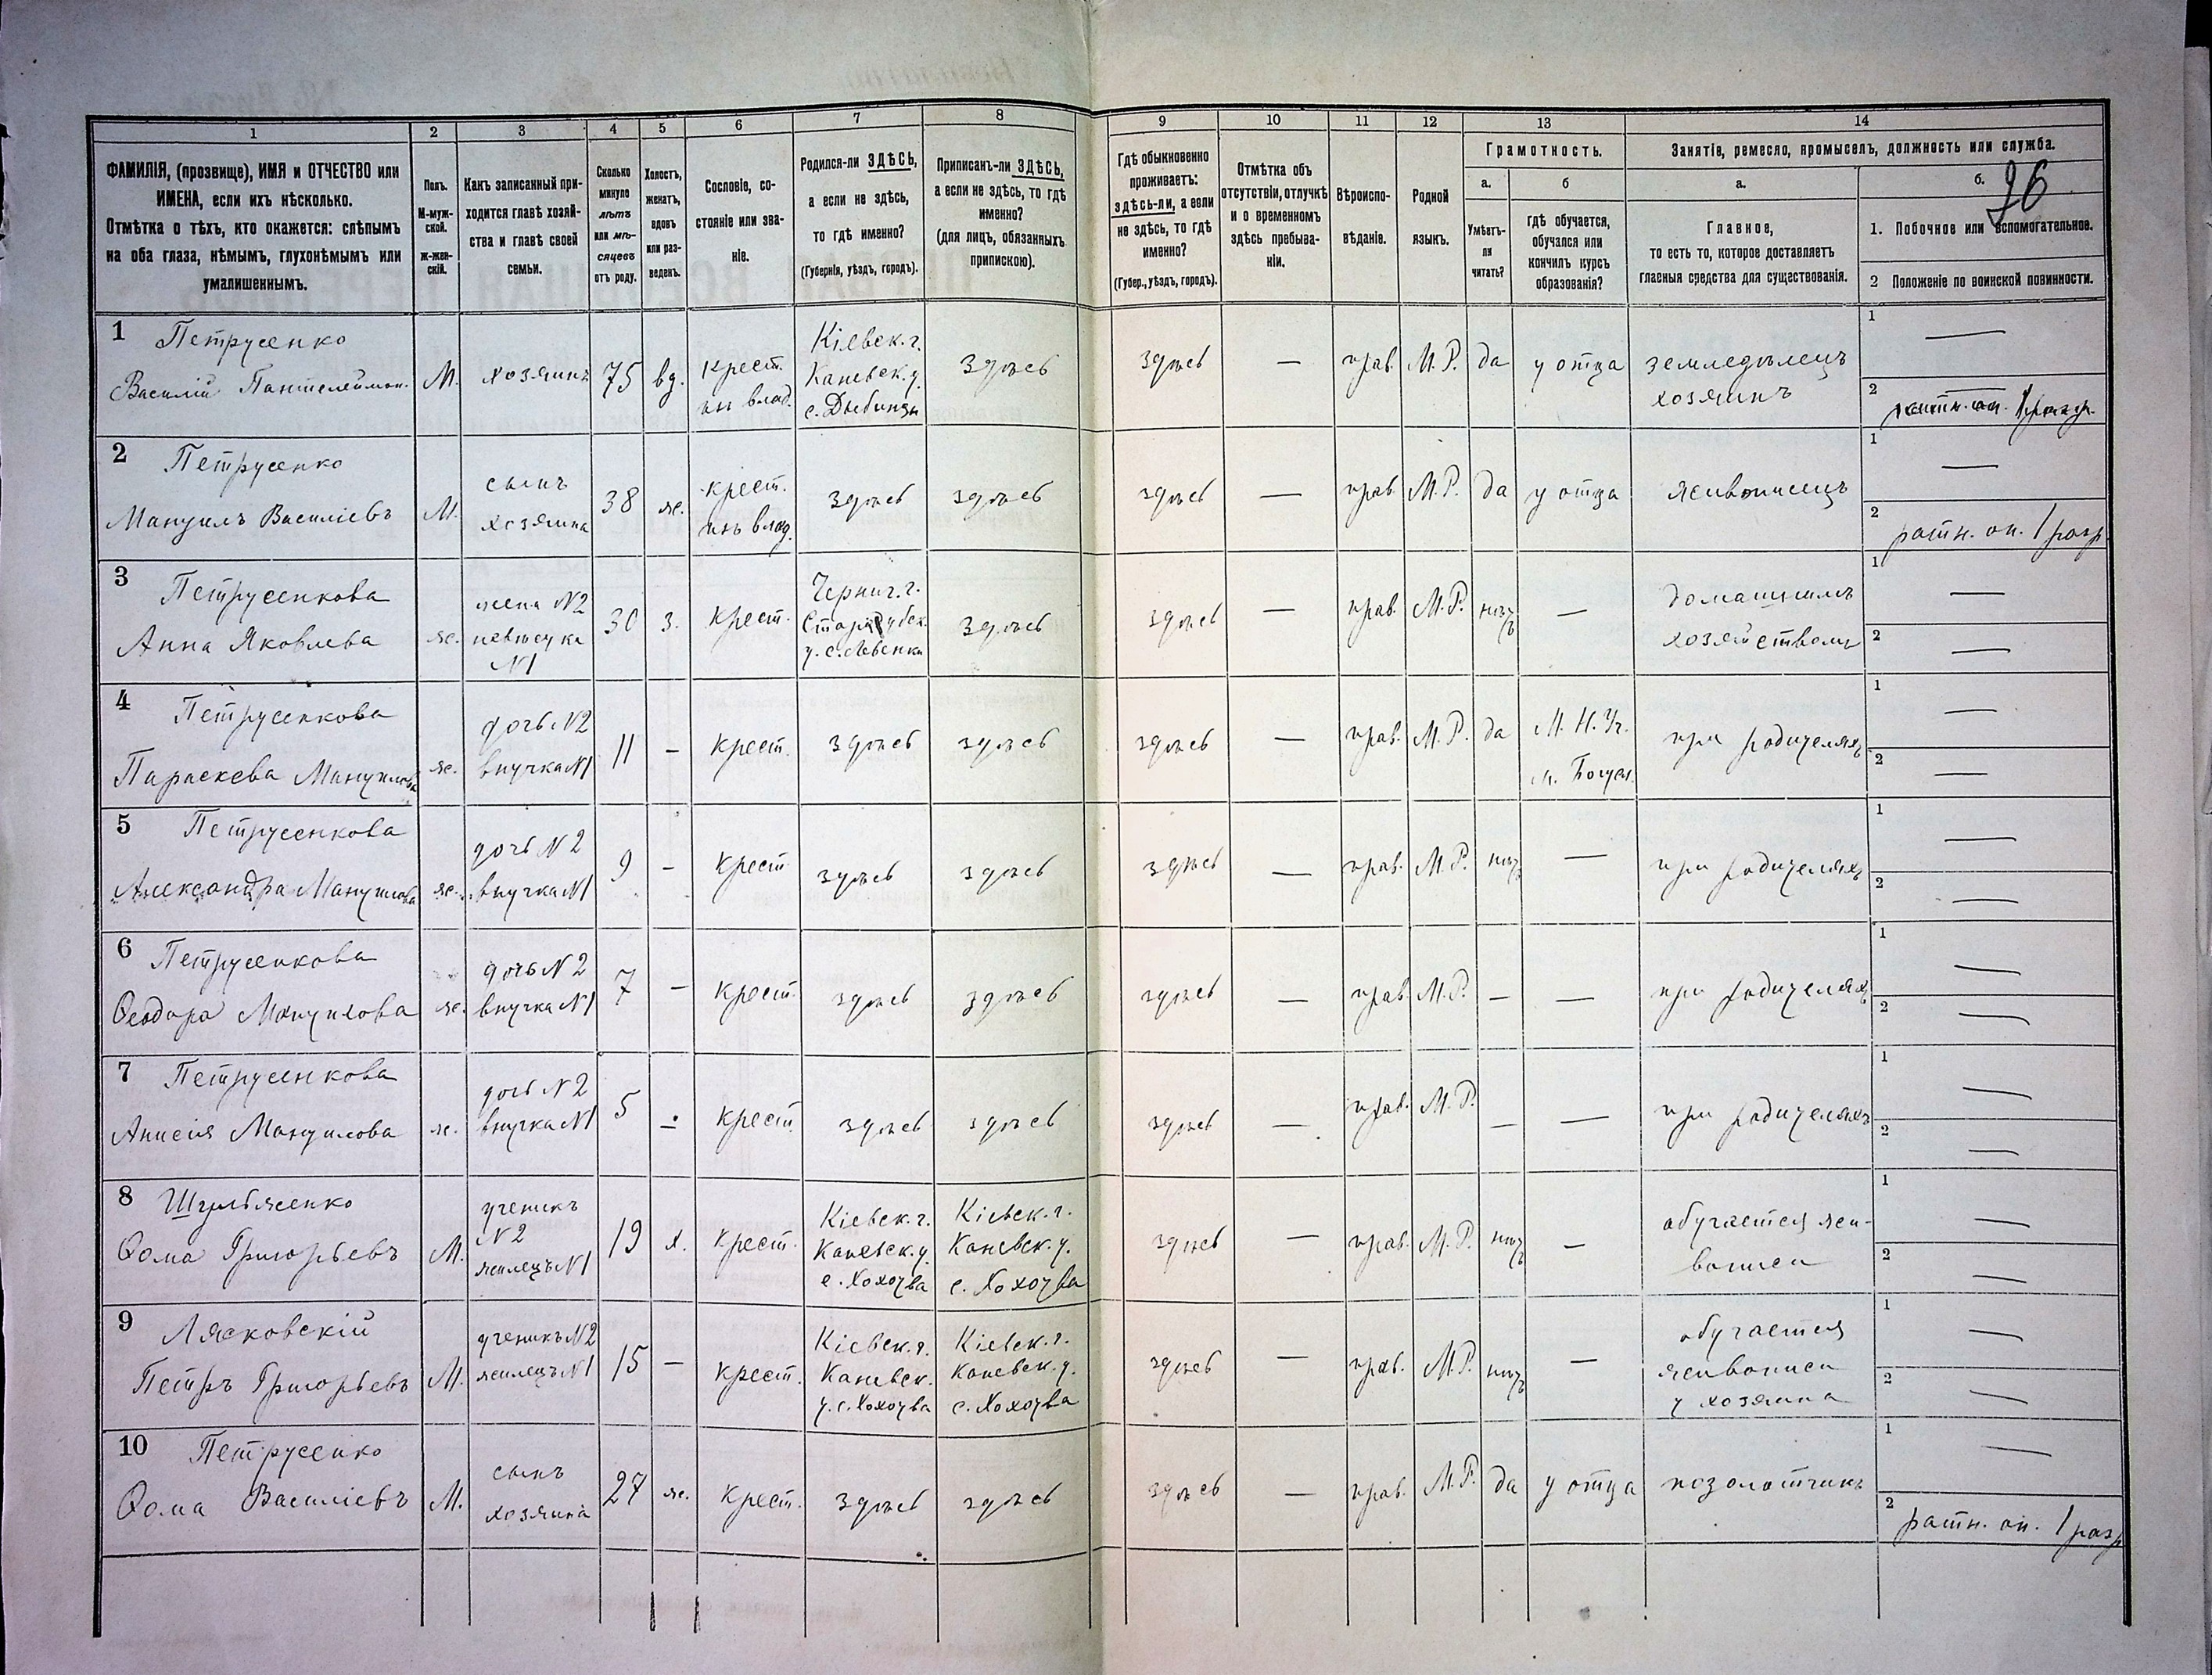 96
1 2 3 4 5 6 7 8 9 10 11 12 13 14
ФАМИЛІЯ, (прозвище), ИМЯ и ОТЧЕСТВО или
ИМЕНА, если ихъ нѣсколько.
Отмѣтка о тѣхъ, кто окажется: слѣпымъ
на оба глаза, нѣмымъ, глухонѣмымъ или
умалишеннымъ.
Полъ.
М-муж-
ской.
ж-жен-
скій.
Какъ записанный при-
ходится главѣ хозяй-
ства и главѣ своей
семьи.
Сколько
минуло
лѣтъ
или мѣ-
сяцевъ
отъ роду.
Холостъ,
женатъ,
вдовъ
или раз-
веденъ.
Сословіе, со-
стояніе или зва-
ніе.
Родился-ли ЗДѢСЬ,
а если не здѣсь,
то гдѣ именно?
(Губернія, уѣздъ, городъ).
Приписанъ-ли ЗДѢСЬ,
а если не здѣсь, то гдѣ
именно?
(для лицъ, обязанныхъ
припискою).
Гдѣ обыкновенно
проживаетъ:
здѣсь-ли, а если
не здѣсь, то гдѣ
именно?
(Губер., уѣздъ, городъ).
Отмѣтка объ
отсутствіи, отлучкѣ
и о временномъ
здѣсь пребыва-
ніи.
Вѣроиспо-
вѣданіе.
Родной
языкъ.
Грамотность.
а.
Умѣетъ-
ли
читать?
б
гдѣ обучается,
обучался или
кончилъ курсъ
образованія?
Занятіе, ремесло, промыселъ, должность или служба.
а.
Главное,
то есть то, которое доставляетъ
главныя средства для существованія.
б.
1. Побочное или вспомогательное.
2 Положеніе по воинской повинности.
1 Петрусенко
Василій Пантелеймон.
М.
хозяинъ
75
вд.
крест.
изъ влад.
Кіевск. г.
Каневск. у.
с. Дыбинцы
здѣсь
здѣсь
—
прав.
М. Р.
да
у отца
земледѣлецъ
хозяинъ
1 —
2 —
2 Петрусенко
Мануилъ Василіевъ
М.
сынъ
хозяина
38
ж.
крест.
изъ влад.
здѣсь
здѣсь
здѣсь
—
прав.
М. Р.
да
у отца
живописецъ
1 —
2 ратн. оп. 1 разр.
3 Петрусенкова
Анна Яковлева
ж.
жена N2
невѣстка
N1
30
з.
крест.
Черниг. г.
Стародубск.
у. с. Левенки
здѣсь
здѣсь
—
прав.
М. Р.
нѣтъ
—
домашнимъ
хозяйствомъ
1 —
2 —
4 Петрусенкова
Параскева Мануилова
ж.
дочь N2
внучка N1
11
—
крест.
здѣсь
здѣсь
здѣсь
—
прав.
М. Р.
да
М. Н. Уч.
м. Богусл.
при родителяхъ
1 —
2 —
5 Петрусенкова
Александра Мануилова
ж.
дочь N2
внучка N1
9
—
крест.
здѣсь
здѣсь
здѣсь
—
прав.
М. Р.
нѣтъ
—
при родителяхъ
1 —
2 —
6 Петрусенкова
Ѳеодора Мануилова
ж.
дочь N2
внучка N1
7
—
крест.
здѣсь
здѣсь
здѣсь
—
прав.
М. Р.
—
—
при родителяхъ
1 —
2 —
7 Петрусенкова
Анисія Мануилова
ж.
дочь N2
внучка N1
5
—
крест.
здѣсь
здѣсь
здѣсь
—
прав.
М. Р.
—
—
при родителяхъ
1 —
2 —
8 Шульженко
Ѳома Григорьевъ
М.
ученикъ
N2
жилецъ N1
19
х.
крест.
Кіевск. г.
Каневск. у.
с. Хохотва
Кіевск. г.
Каневск. у.
с. Хохотва
здѣсь
—
прав.
М. Р.
нѣтъ
—
обучается жи-
вописи
1 —
2 —
9 Лясковскій
Петръ Григорьевъ
М.
ученикъ N2
жилецъ N1
15
—
крест.
Кіевск. г.
Каневск.
у. с. Хохотва
Кіевск. г.
Каневск. у.
с. Хохотва
здѣсь
—
прав.
М. Р.
нѣтъ
—
обучается
живописи
у хозяина
1 —
2 —
10 Петрусенко
Ѳома Василіевъ
М.
сынъ
хозяина
27
ж.
крест.
здѣсь
здѣсь
здѣсь
—
прав.
М. Р.
да
у отца
позолотчикъ
1 —
2 ратн. оп. 1 разр